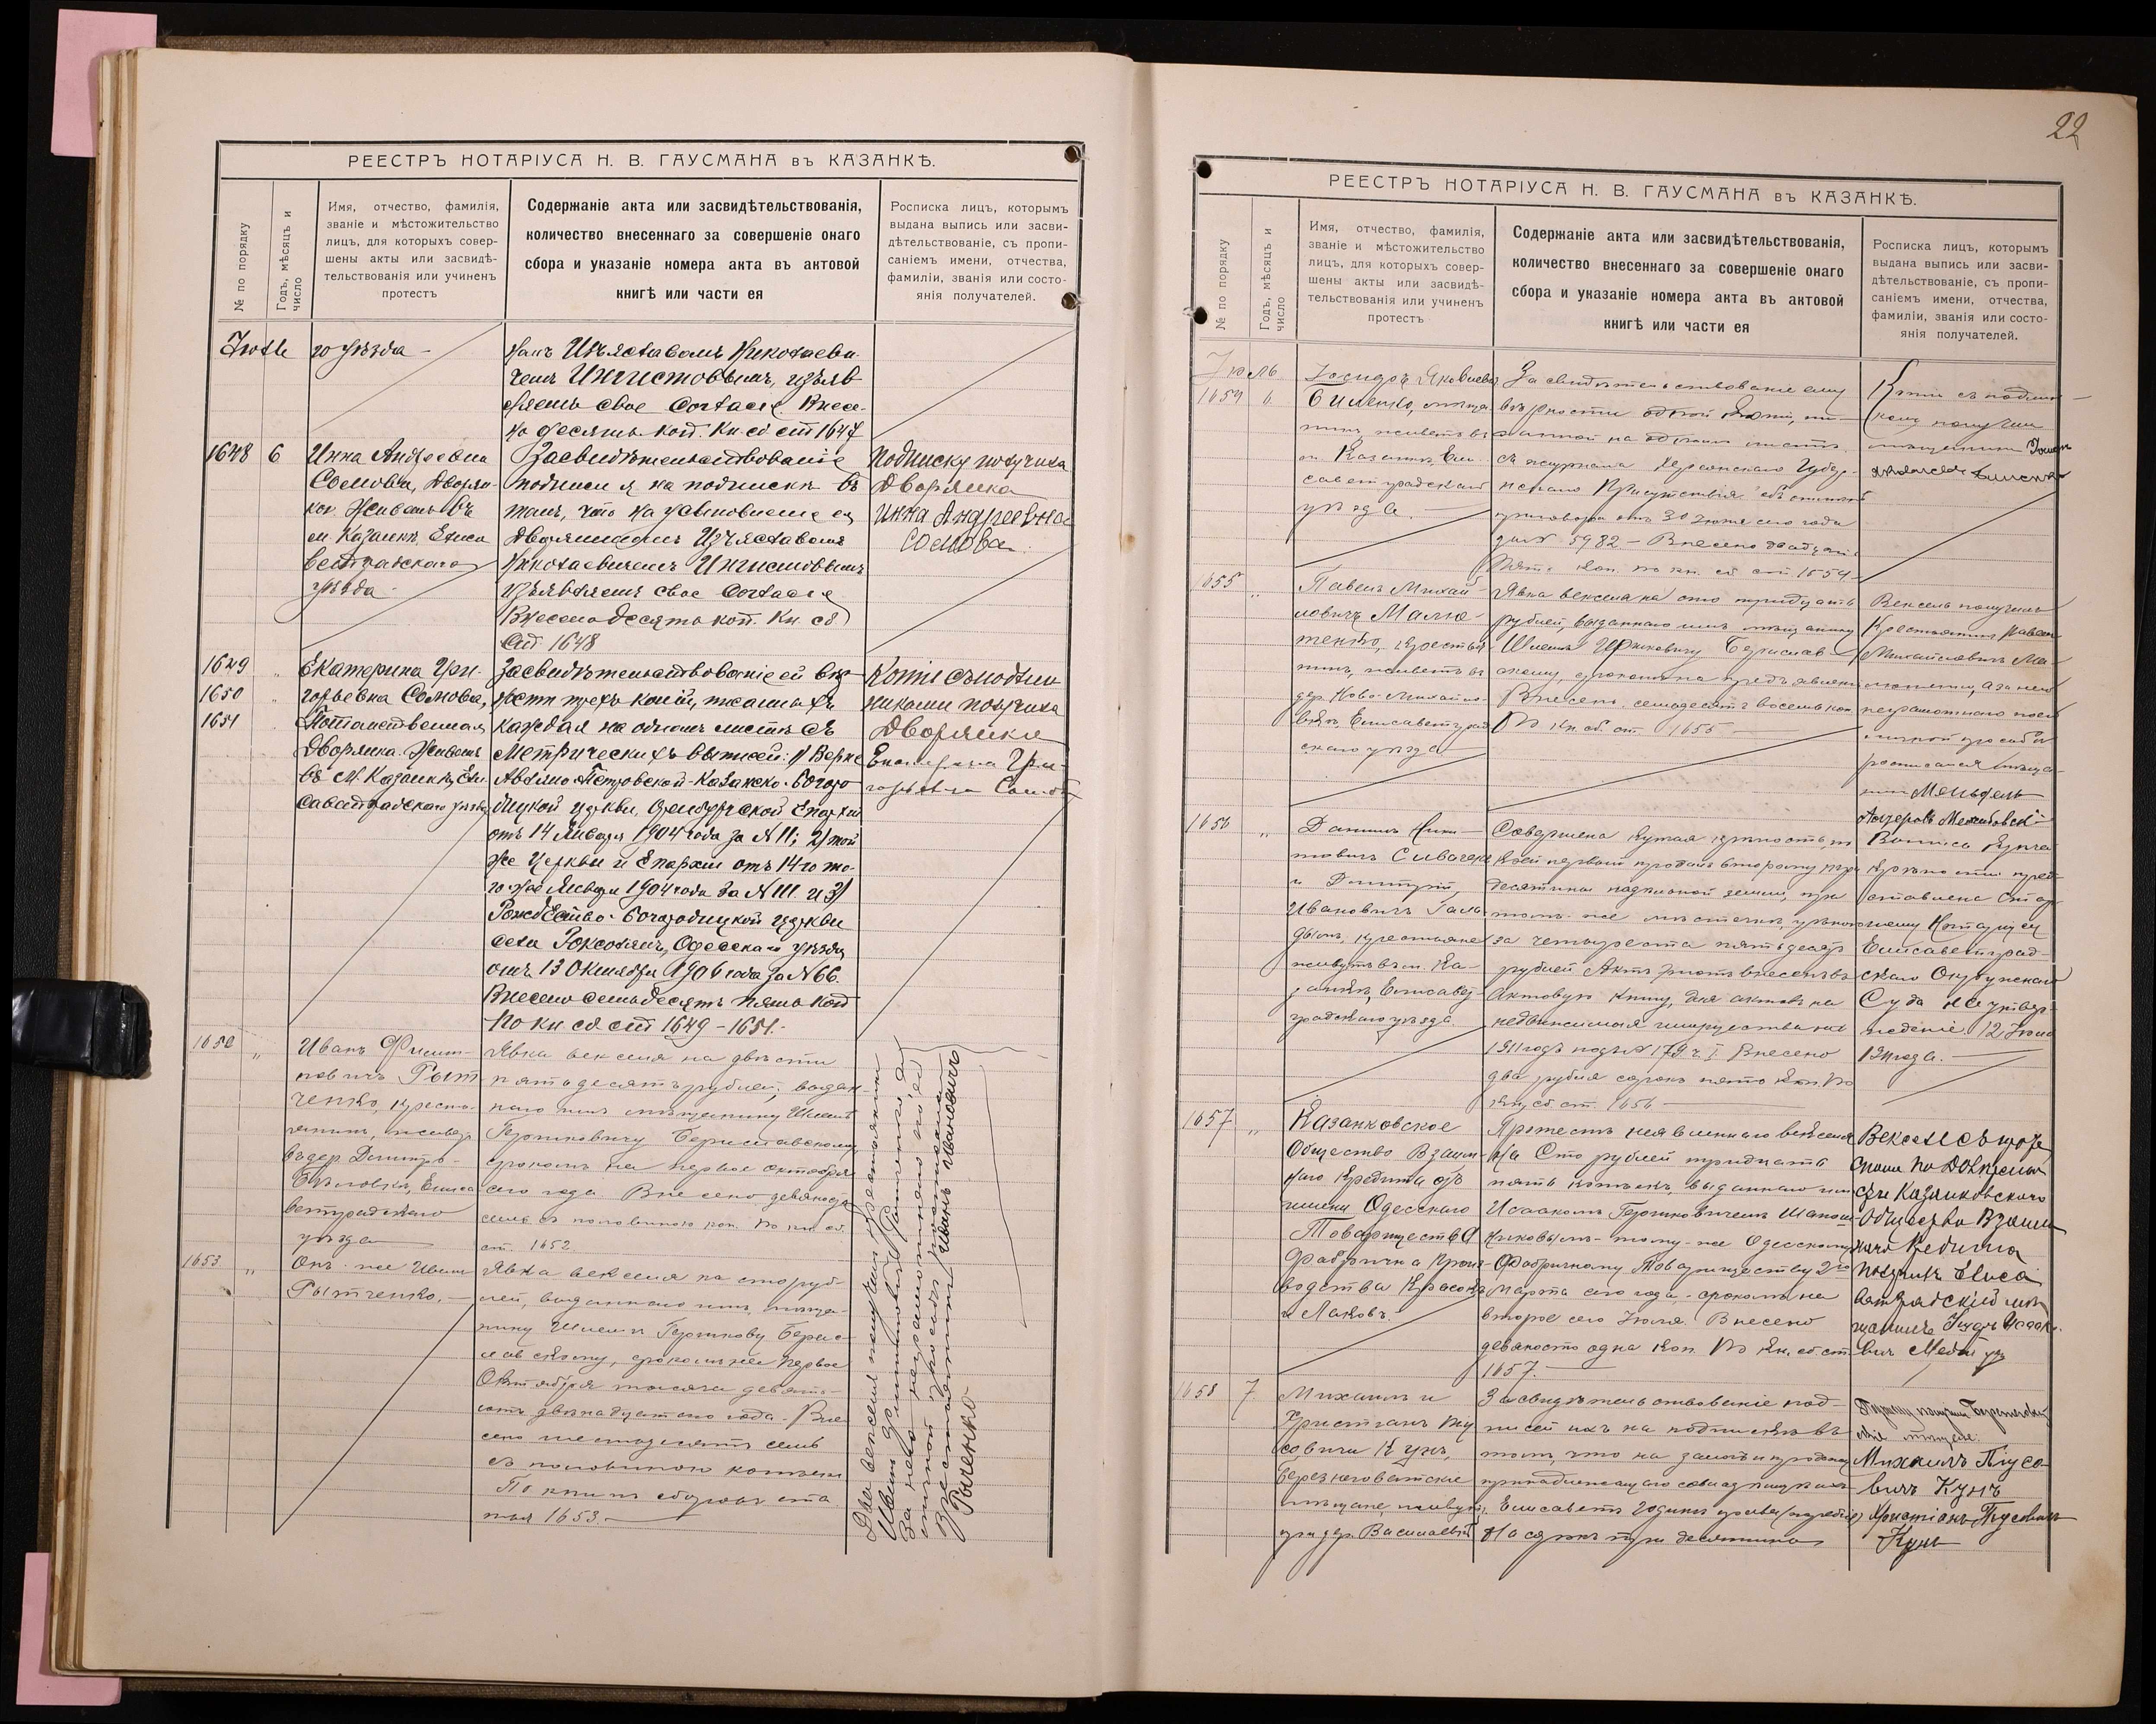 РЕЕСТРЪ НОТАРІУСА Н. В. ГАУСМАНА въ КАЗАНКѢ.
№ по порядку
Годъ, мѣсяцъ и
число
Имя, отчество, фамилія,
званіе и мѣстожительство
лицъ, для которыхъ совер-
шены акты или засвидѣ-
тельствованія или учиненъ
протестъ
Содержаніе акта или засвидѣтельствованія,
количество внесеннаго за совершеніе онаго
сбора и указаніе номера акта въ актовой
книгѣ или части ея
Росписка лицъ, которымъ
выдана выпись или засви-
дѣтельствованіе, съ пропи-
саніемъ имени, отчества,
фамиліи, званія или состо-
янія получателей.
го уѣзда
Николаеви-
чемъ Ингистовымъ, изъяв-
ляетъ свое согласіе. Внесе-
но десять коп. Кн. сб. ст 1647
1648 6
Инна Андреевна
Сомова, Дворян-
ка. Живетъ въ
м. Казанкѣ, Елиса
ветградскаго
уѣзда
Засвидѣтельствованіе
подписи я на подпискѣ въ
томъ, что на усыновленіе ея
Дворяниномъ Изъяславомъ
Николаевичемъ Ингистовымъ
изъявляетъ свое согласіе
Внесено десять коп. Кн. сб
ст. 1648
Подписку получила
Дворянка
Инна Андреевна
Сомова
1649
1650
1651
Екатерина Гри-
горьевна Сомова,
Потомственная
Дворянка. Живетъ
въ м. Казанкѣ, Ели-
саветградскаго уѣзда
Засвидѣтельствованіе ей вѣр-
ности трехъ копій, писанныхъ
каждая на одномъ листѣ съ
Метрическихъ выписей: 1) Верхне
Авзяно-Петровской-Казанско-Богоро
дицкой церкви, Оренбургской Епархіи
отъ 14 Января 1904 года за N 11; 2) той
же Церкви и Епархіи отъ 14го то-
го-же Января 1904 года за N 111. и 3)
Рождество-Богородицкой церкви
села Роксолянъ, Одесскаго уѣзда
отъ 13 Октября 1906 года за N 66.
Внесено семьдесятъ пять коп
По кн сб ст 1649 - 1651.
Копіи съ подлин-
никами получила
Дворянка
Екатерина Гри-
горьевна Сомова
1652 "
Иванъ Филип-
повичъ Рыт
ченко, кресть-
янинъ, живетъ
въ дер. Димитро-
Бѣловкѣ, Елиса-
ветградскаго
уѣзда
Явка векселя на двѣсти
пятьдесятъ рублей, выдан-
наго имъ мѣщанину Шлемѣ
Гершковичу Бериславскому
срокомъ на первое октября
сего года. Внесено девяносто
семь съ половиною коп. По кн. сб.
ст. 1652
1653. "
Онъ-же Иванъ
Рытченко.
Явка векселя на сто руб-
лей, выданнаго имъ, мѣща-
нину Шлемѣ Гершкову Берис-
лавскому, срокомъ на первое
Октября тысяча девять-
сотъ двѣнадцатаго года. Вне-
сено шестьдесятъ семь
съ половиною копѣекъ
По книгѣ сборовъ ста
тья 1653.
Два векселя получилъ крестьянинъ
Иванъ Филипповичъ Рытченко, а
за него неграмотнаго по его
личной просьбѣ росписался
крестьянинъ Иванъ Ивановичъ
Рыченко
22
РЕЕСТРЪ НОТАРІУСА Н. В. ГАУСМАНА въ КАЗАНКѢ.
№ по порядку
Годъ, мѣсяцъ и
число
Имя, отчество, фамилія,
званіе и мѣстожительство
лицъ, для которыхъ совер-
шены акты или засвидѣ-
тельствованія или учиненъ
протестъ
Содержаніе акта или засвидѣтельствованія,
количество внесеннаго за совершеніе онаго
сбора и указаніе номера акта въ актовой
книгѣ или части ея
Росписка лицъ, которымъ
выдана выпись или засви-
дѣтельствованіе, съ пропи-
саніемъ имени, отчества,
фамиліи, званія или состо-
янія получателей.
Іюль
1654 6
Яковлевъ
Биленко, мѣща-
нинъ, живетъ въ
м. Казанкѣ, Ели-
саветградскаго
уѣзда.
Засвидѣтельствованіе ему
вѣрности одной копіи, пи-
санной на одномъ листѣ
съ журнала Херсонскаго Губер-
нскаго Присутствія объ
приговора отъ 30 Іюня сего года
за N 5982 - Внесено двадцать
пять коп. по кн. сб ст. 1654
Копію съ подлин-
комъ получилъ
мѣщанинъ
Яковлевъ Биленко
1655 "
Павелъ Михай-
ловичъ Малю-
тенко, крестья-
нинъ, живетъ въ
дер. Ново-Михайло-
вкѣ, Елисаветград
скаго уѣзда
Явка векселя на сто тридцать
рублей, выданнаго имъ мѣщанину
Шлемѣ Гершковичу Берислав-
скому, срокомъ на предъявленіи
Внесено семьдесятъ восемь коп.
По кн. сб. ст. 1655
Вексель получилъ
Крестьянинъ Павелъ
Михайловичъ Ма-
лютенко, а за него
неграмотнаго по его
личной просьбѣ
росписался мѣща-
нинъ Мендель
Межибовскій
1656 "
Даніилъ Ники-
товичъ Сивачен
и Дмитрій
Ивановичъ Гала-
дымъ, крестьяне
живутъ въ м. Ка-
занкѣ, Елисавет-
градскаго уѣзда
Совершена купчая крѣпость по
коей первый продалъ второму три
десятины надѣльной земли, при
томъ-же мѣстечкѣ, цѣною
за четыреста пятьдесятъ
рублей. Актъ этотъ внесенъ въ
Актовую книгу, для актовъ на
недвижимыя имущества на
1911 годъ подъ N 179 ч. I. Внесено
два рубля сорокъ пять коп. По
кн. сб. ст. 1656
Выпись купчей
крѣпости пред-
ставлена Стар-
шему Нотаріусу
Елисаветград-
скаго Окружнаго
Суда на утвер-
жденіе 12 Іюля
1911 года.
1657 "
Казанковское
Общество Взаим-
наго Кредита отъ
имени Одесскаго
Товарищества
Фабричнаго Произ-
водства Красокъ
и Лаковъ.
Протестъ неявленнаго векселя
на Сто рублей тридцать
пять копѣекъ, выданнаго
Исаакомъ Гершковичемъ Шапош-
никовымъ-тому-же Одесскому
Фабричному Товариществу 2го
марта сего года, срокомъ на
второе сего Іюля. Внесено
девяносто одна коп. По кн. сб. ст.
1657.
Вексель съ проте
стомъ по Довѣренно
сти Казанковскаго
Общества Взаим
наго Кредита
получилъ Елиса
ветградскій мѣ
щанинъ Исаако-
вичъ
1658 7
Михаилъ и
Христіанъ Піу
совичи Кунъ,
Березнеговатскіе
мѣщане, живутъ
при дер. Васильевкѣ
Засвидѣтельствованіе под-
писей ихъ на подпискѣ въ
томъ, что на залогъ и продажу
принадлежащаго
Елисаветъ
На сорокъ три десятины
Подписку получили Березнеговат
скіе мѣщане:
Михаилъ Піусо
вичъ Кунъ
Христіанъ Піусовичъ
Кунъ